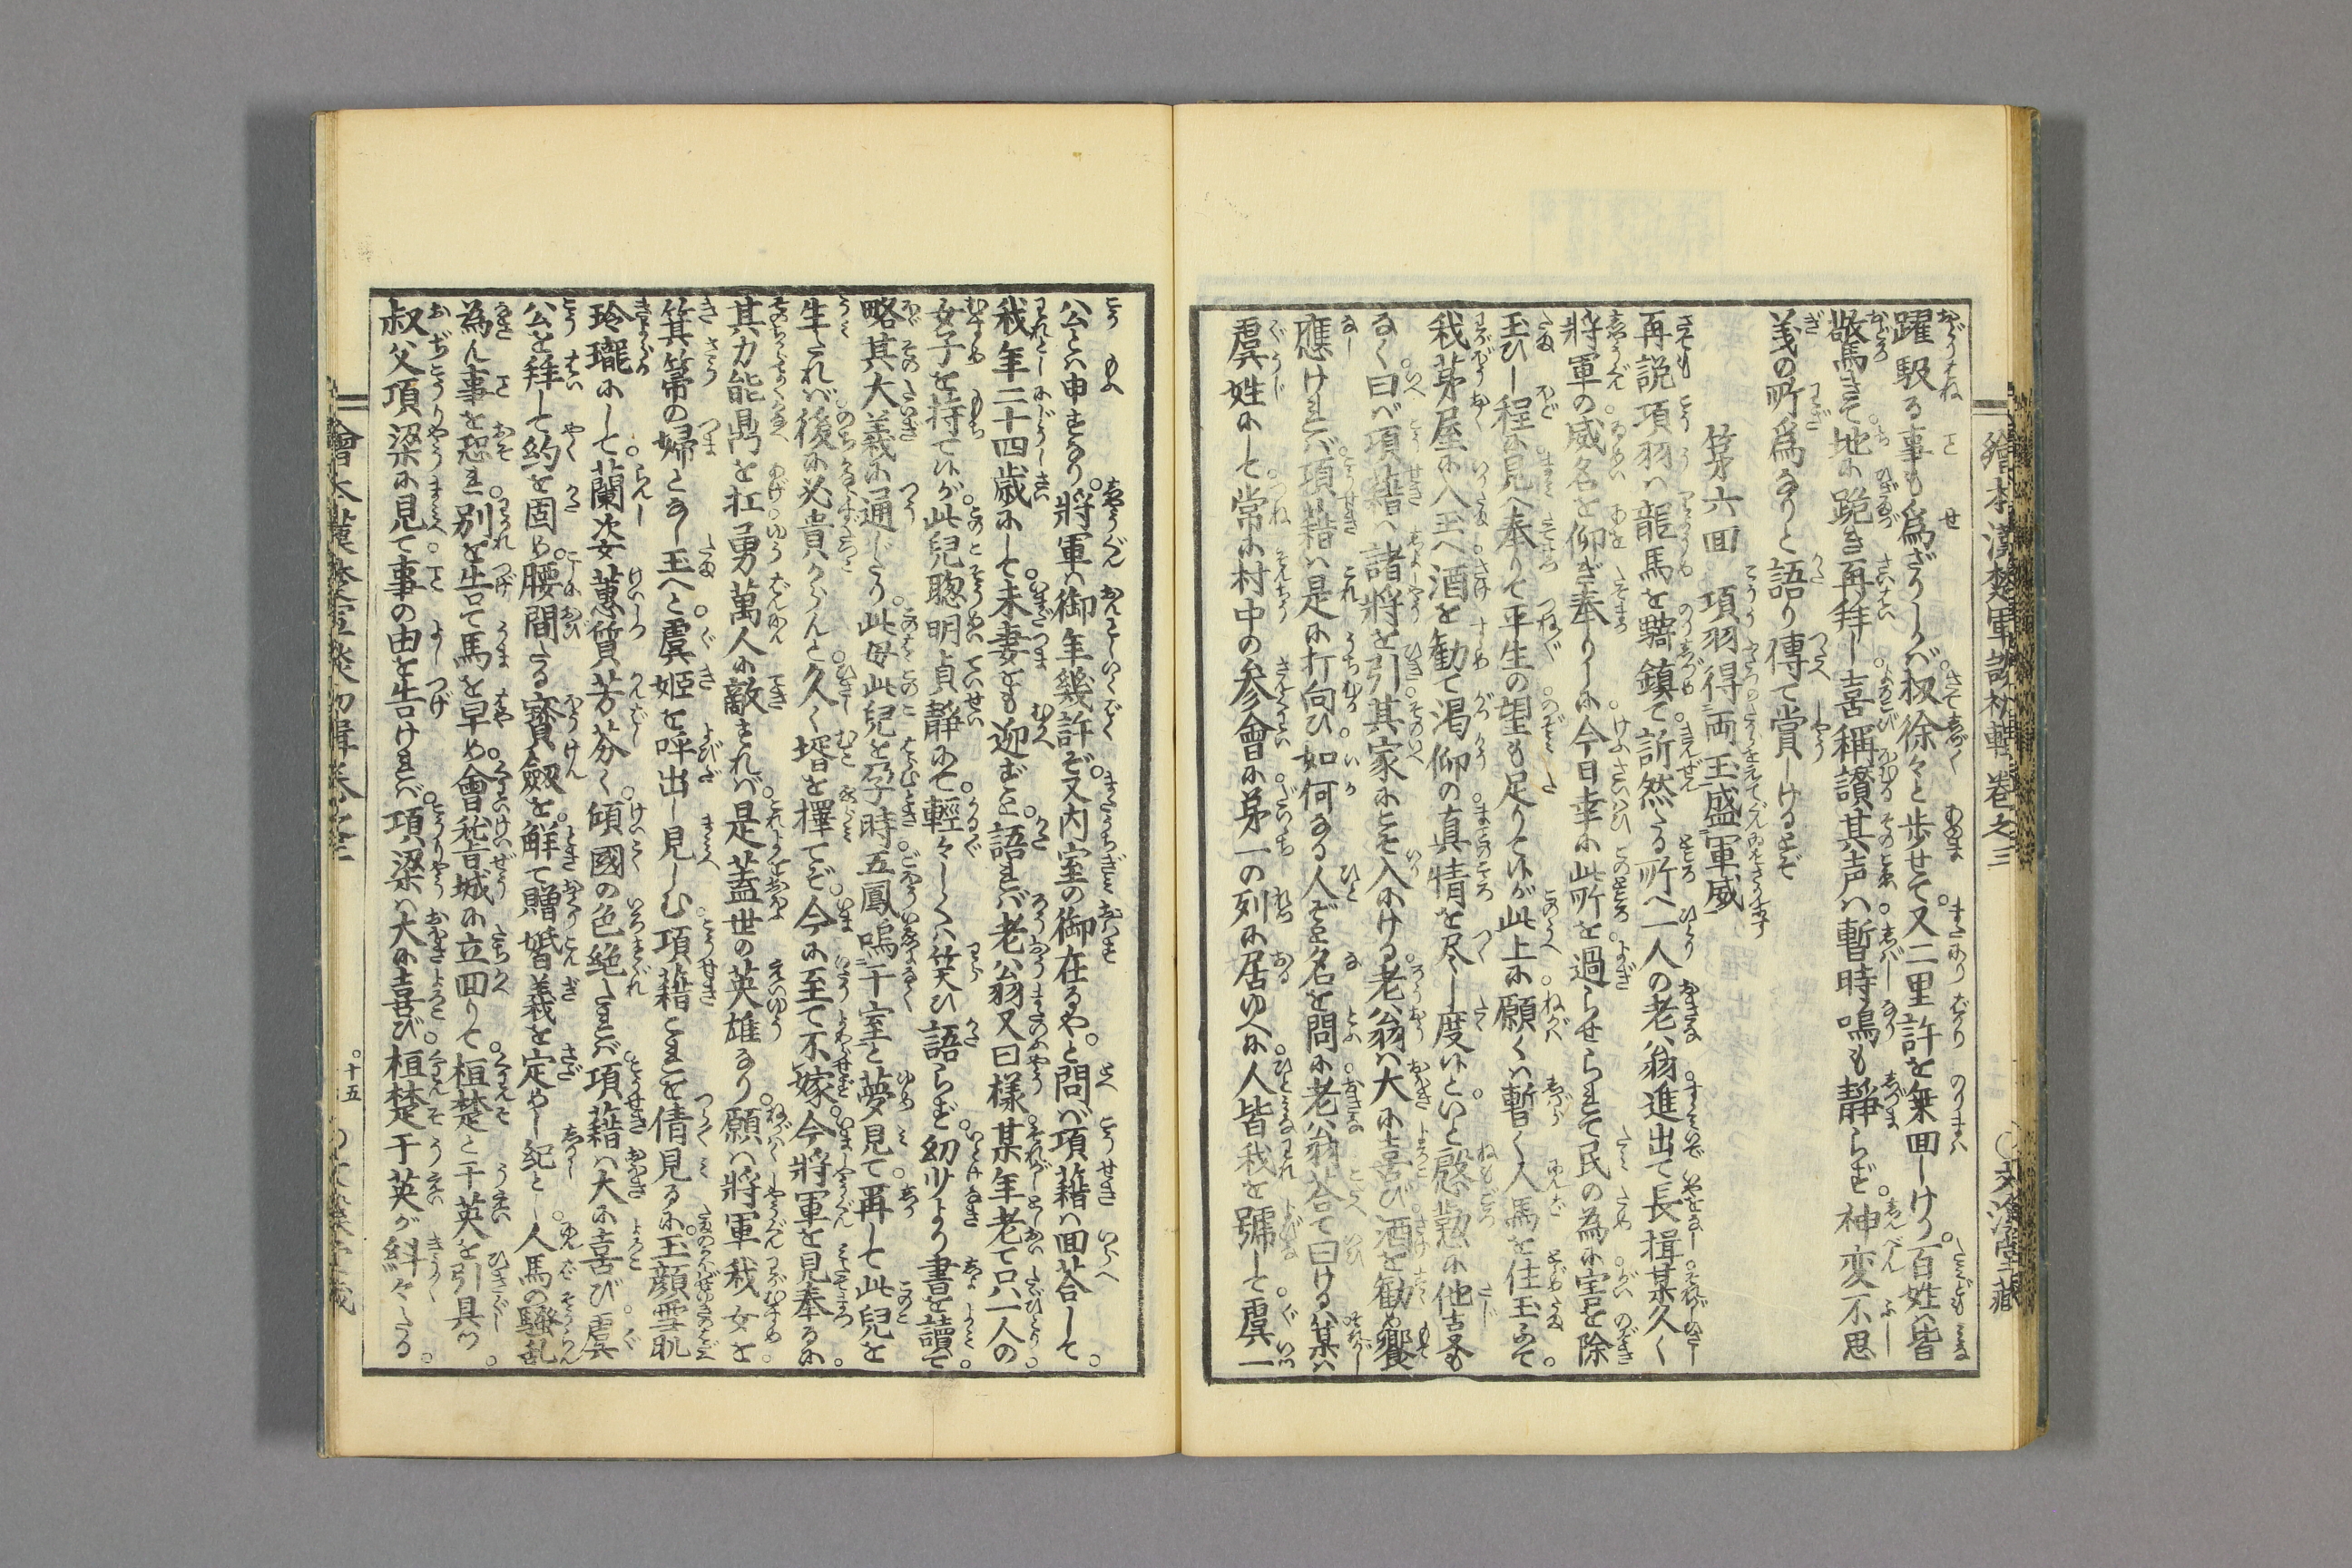 繪本漢楚軍談初輯 卷之三
躍馭る事も爲ざりしかば扨徐々と歩せて又二里許を乗回しけり百姓は皆
驚きて地に跪き再拜し喜稱讃其声は暫時鳴も靜らず神変不思
義の所爲なりと語り傳て賞しけるとぞ
第六回 項羽得両玉盛軍威
再説項羽は龍馬を騎鎮て訢然たる所へ一人の老翁進出て長揖某久く
將軍の威名を仰ぎ奉りしに今日幸に此所を過らせられて民の為に害を除
玉ひし程に見へ奉りて平生の望も足りて候が此上に願くは暫く人馬を住玉ふて
我茅屋に入玉へ酒を勧て渇仰の真情を尽し度候といと慇懃に他事も
なく曰ば項籍は諸將を引其家にこそ入にける老翁は大に喜び酒を勧め饗
應けれバ項籍は是に打向ひ如何なる人ぞと名を問に老翁荅て曰けるは某は
虞姓にして常に村中の参會に第一の列に居ゆへに人皆我を號して虞一
公とは申すなり將軍は御年幾許ぞ又内室の御在るやと問ば項籍は回荅して
我年二十四歳にして未妻をも迎ずと語れば老翁又曰様某年老て只一人の
女子を持て候が此兒聰明貞靜にて輕々しくは笑ひ語らず幼少より書を讀て
略其大義に通じたり此母此兒を孕時五鳳鳴于室と夢見て再して此兒を
生たれバ後に必貴からんと久く壻を擇てぞ今に至て不嫁今將軍を見奉るに
其力能鼎を扛勇萬人に敵すれバ是蓋世の英雄なり願は將軍我女を
箕箒の婦となし玉へと虞姬を呼出し見しむ項籍これを倩見るに玉顔雪肌
玲瓏にして蘭次女蕙質芳芬く傾國の色絶たれバ項籍は大に喜び虞
公を拜して約を固め腰間なる寳劔を觧て贈婚義を定めし紀とし人馬の騒乱
為ん事を恐れ別を告て馬を早め會稽城に立回りて桓楚と于英を引具し
叔父項梁に見て事の由を告けれバ項梁は大に喜び桓楚于英が糾々たる
十五